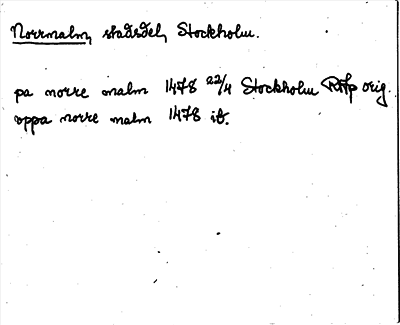 Norrmalm, stadsdel, Stockholm.
pa norre malm 1478 22/4 Stockholm RAp orig.
oppa norre malm 1478 ib.